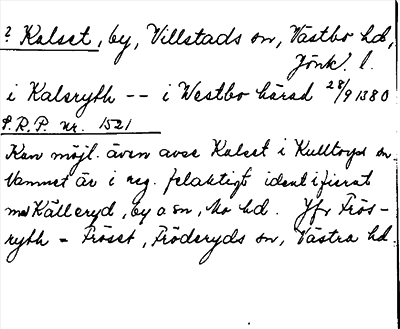 ? Kalset, by, Villstads sn, Västbo hd,
Jönk. l.
i Kalsryth -- i Westbo härad 28/9 1380
S.R.P. nr. 1521
Kan möjl. även avse Kalset i Kulltorps sn.
Namnet är i reg. felaktigt identifierat
med Källeryd, by o sn, Mo hd. Jfr Frös-
ryth = Fröset, Fröderyds sn, Västra hd.